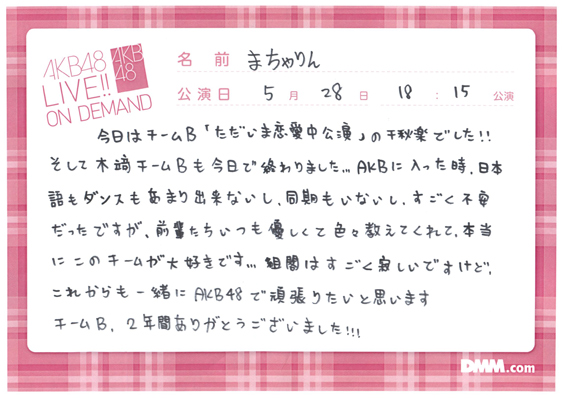 AKB48
LIVE!!
ON DEMAND
AKB
48
名前 まちゃりん
公演日 5月28日 18:15公演
今日はチームB「ただいま恋愛中公演」の千秋楽でした!!
そして木﨑チームBも今日で終わりました… AKBに入った時、日本
語もダンスもあまり出来ないし、同期もいないし、すごく不安
だったですが、前輩たちいつも優しくて色々教えてくれて、本当
にこのチームが大好きです… 組閣はすごく寂しいですけど、
これからも一緒にAKB48で頑張りたいと思います
チームB、2年間ありがとうございました!!!
DMM.com